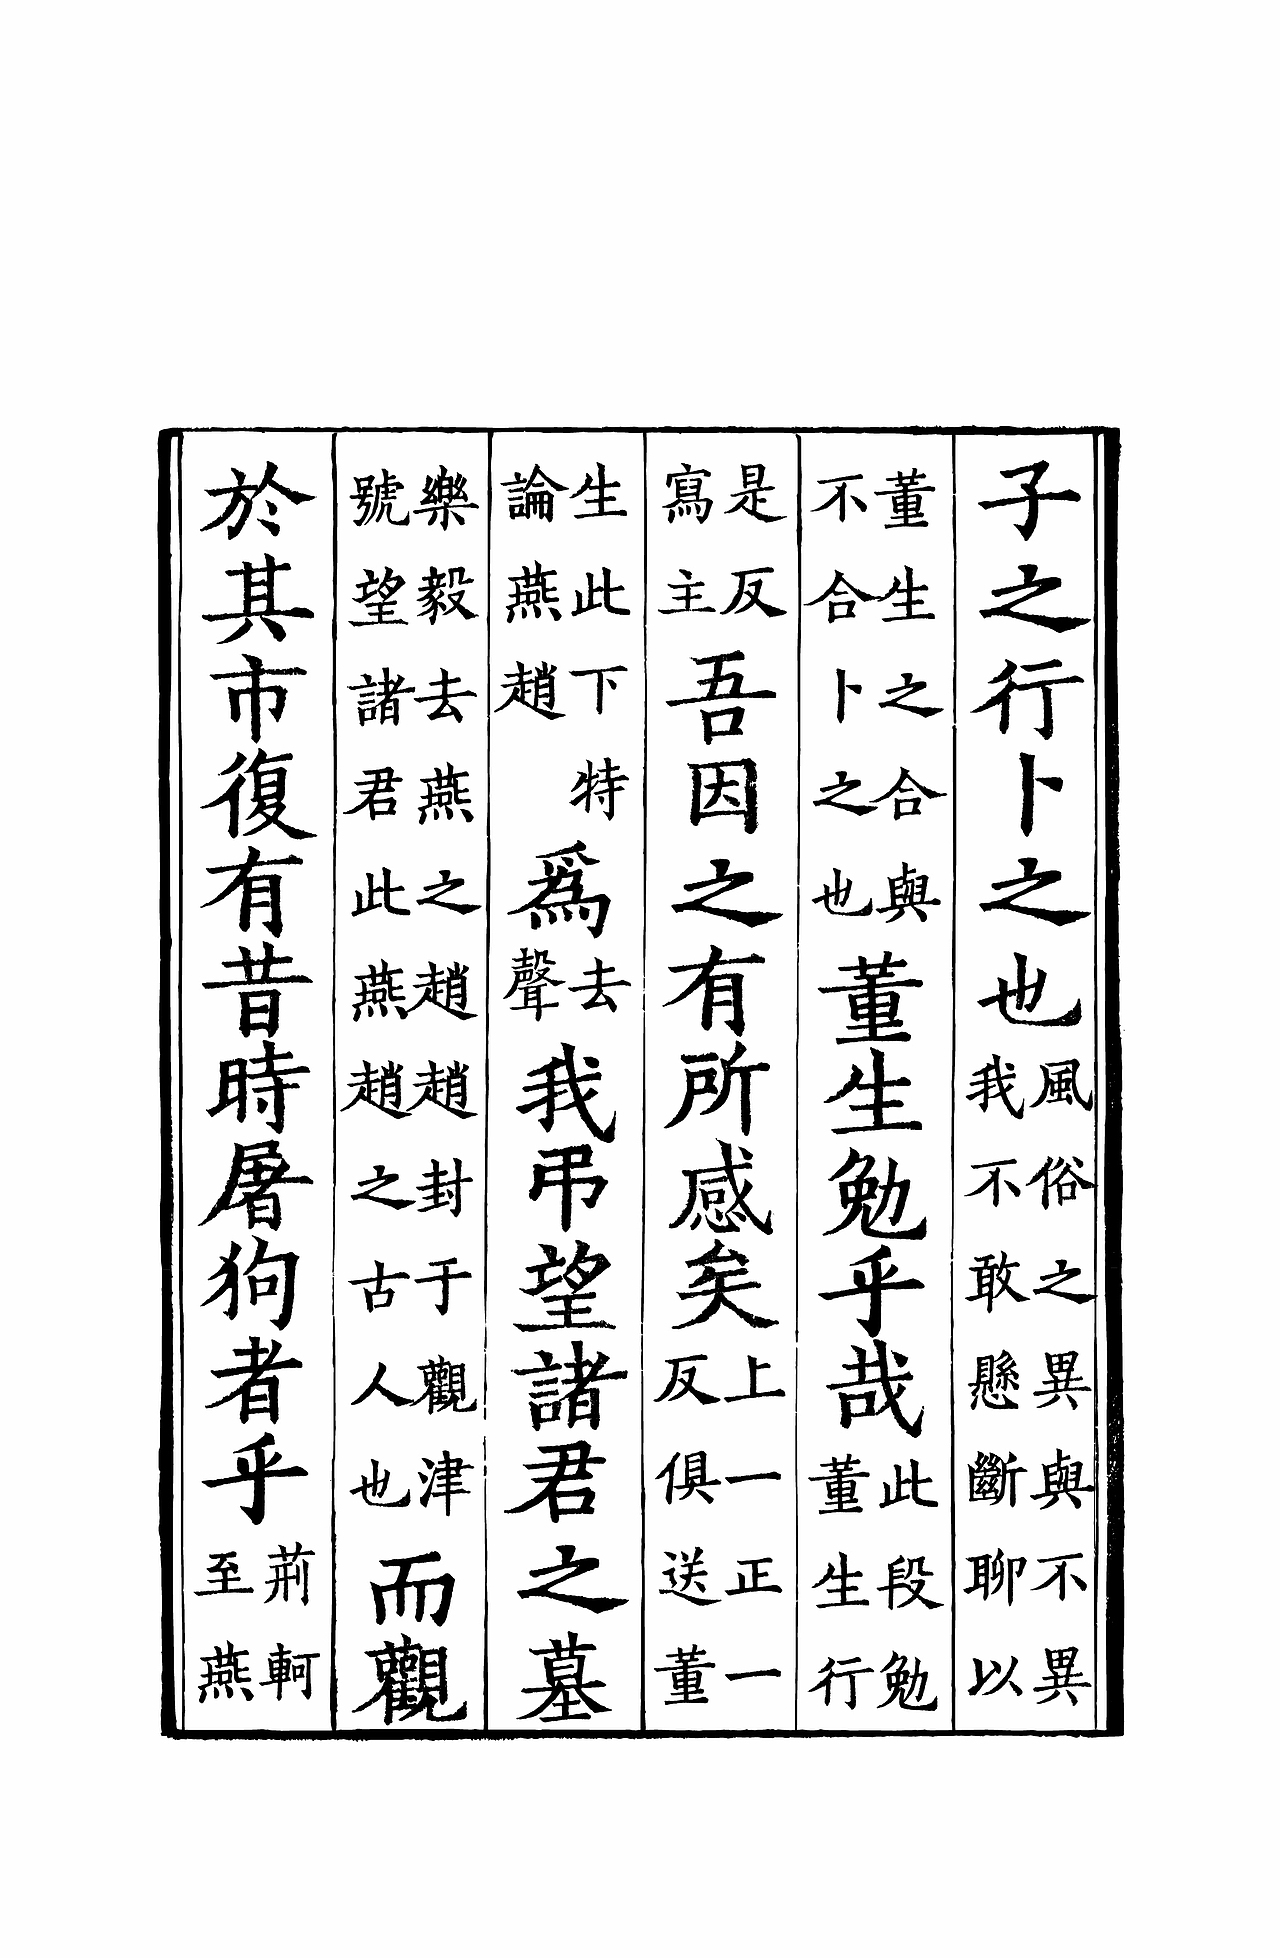 子之行卜之也風俗之異與不異我不敢懸斷聊以
董生之合與不合卜之也董生勉乎哉此段勉董生行
是反寫主吾因之有所感矣上一正一反俱送董
生此下特論燕趙爲去聲我弔望諸君之墓
樂毅去燕之趙趙封于觀津號望諸君此燕趙之古人也而觀
於其市復有昔時屠狗者乎荊軻至燕